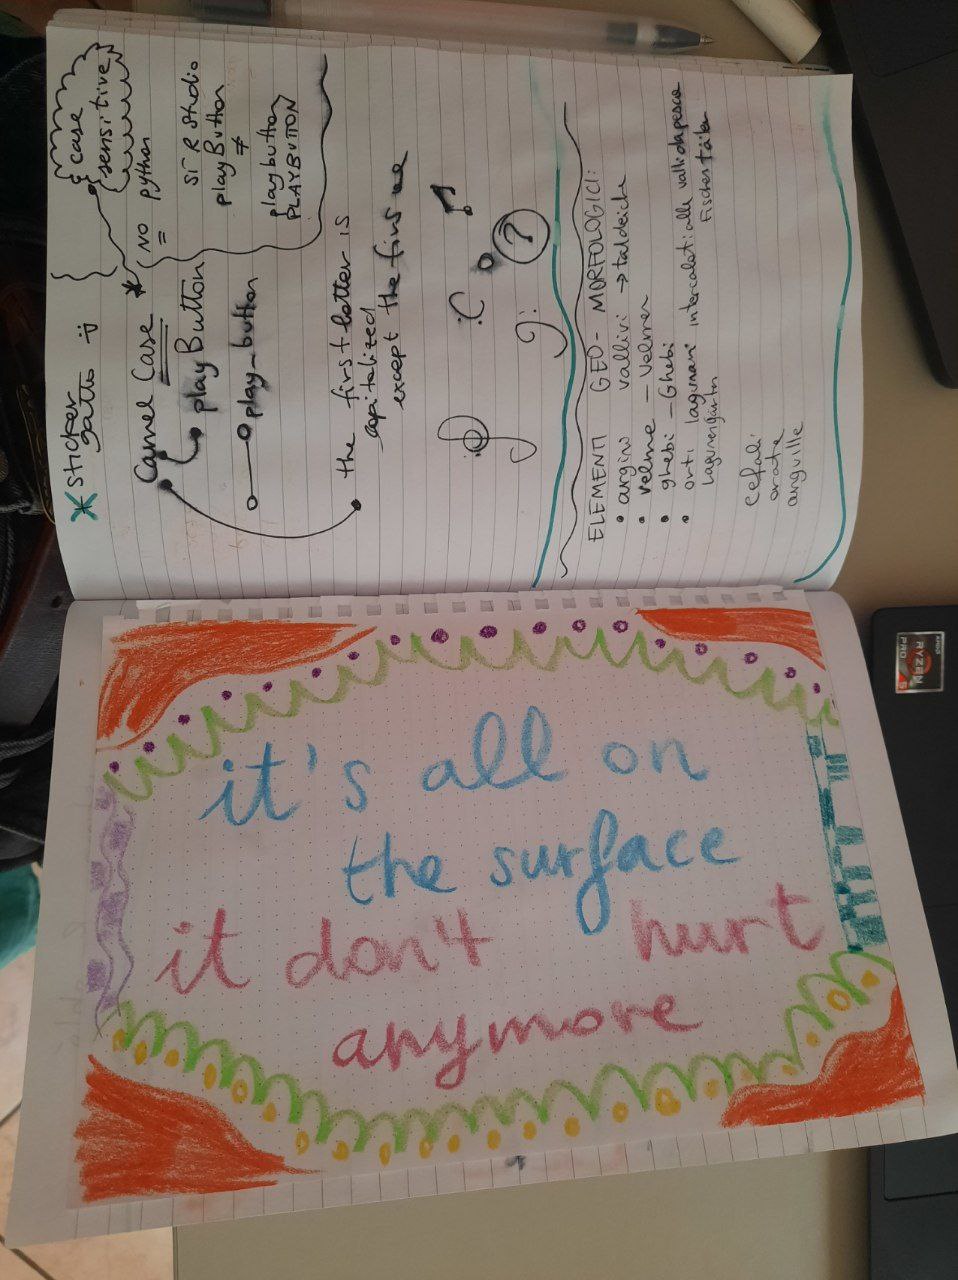 * sticker
gatto
case
sensitive
NO
python
Camel Case
playButton
play_button
sì R studio
playButton
≠
playbutton
PLAYBUTTON
the first letter is
capitalized
except the first
?
ELEMENTI GEO-MORFOLOGICI:
• argini vallivi → taldeiche
• velme - Velmen
• ghebi - Ghebi
• orti lagunari intercalati alle valli da pesca
Lagunengärten
cefali
orate
anguille
it's all on
the surface
it don't hurt
anymore
AMD
RYZEN
PRO
5